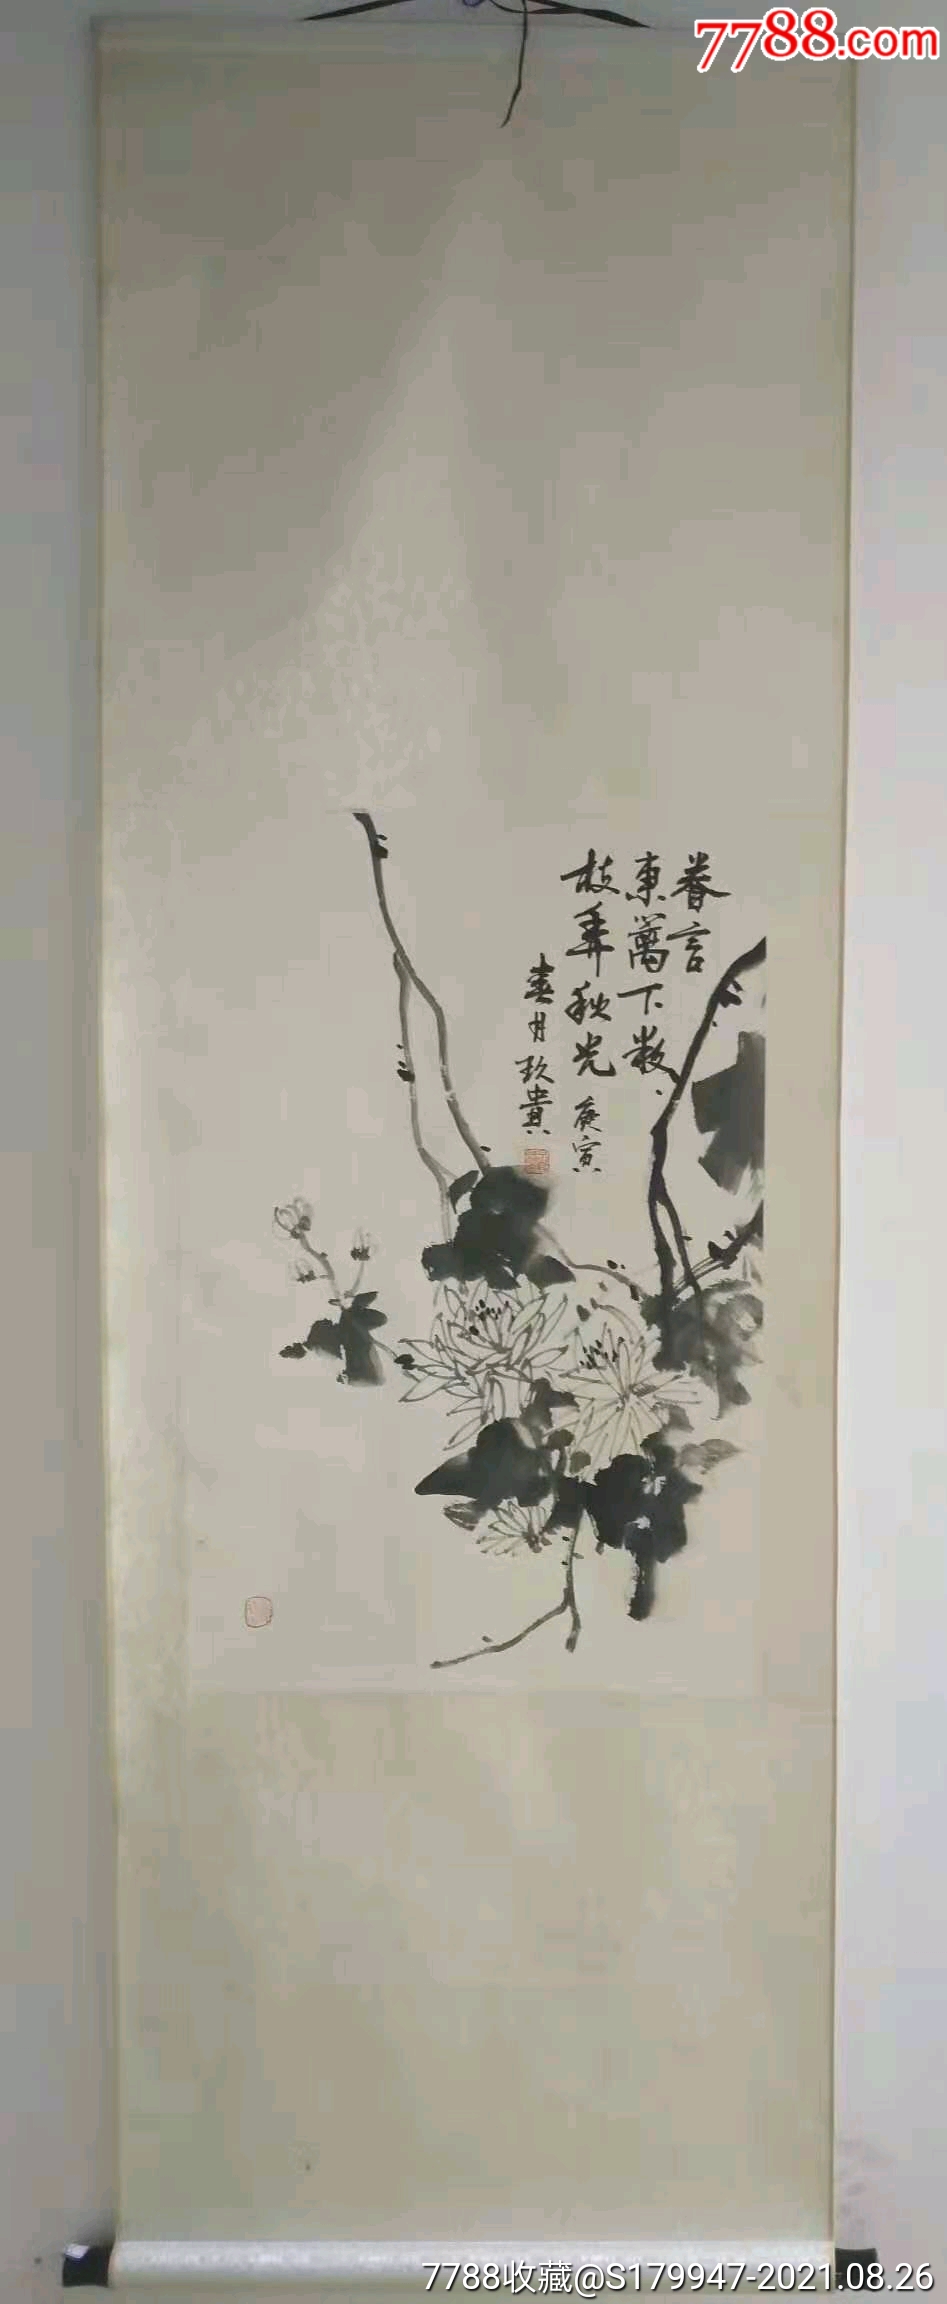 7788.com
眷言
東篱下数
枝弄秋光 庚寅
春月 玖貴
7788收藏@S179947-2021.08.26